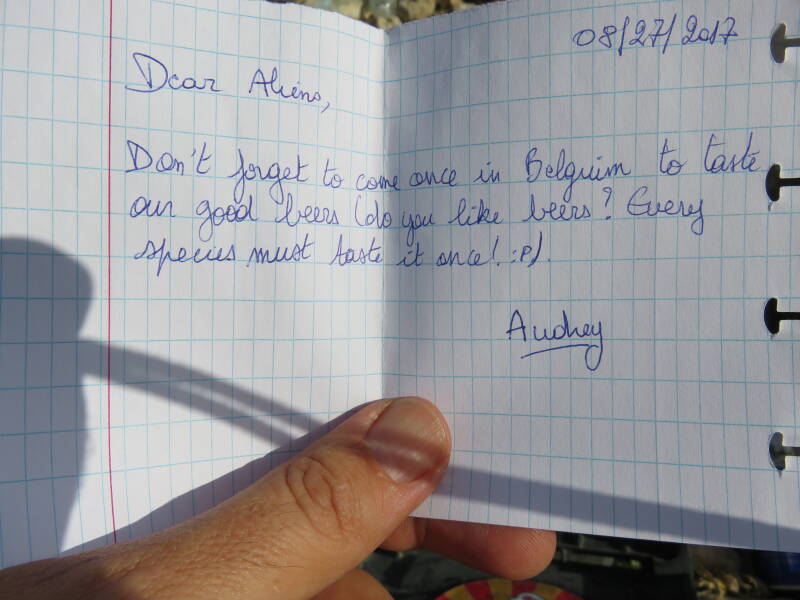 08/27/2017
Dear Aliens,
Don't forget to come once in Belguim to taste
our good beers (do you like beers? Every
species must taste it once! :P).
Audrey